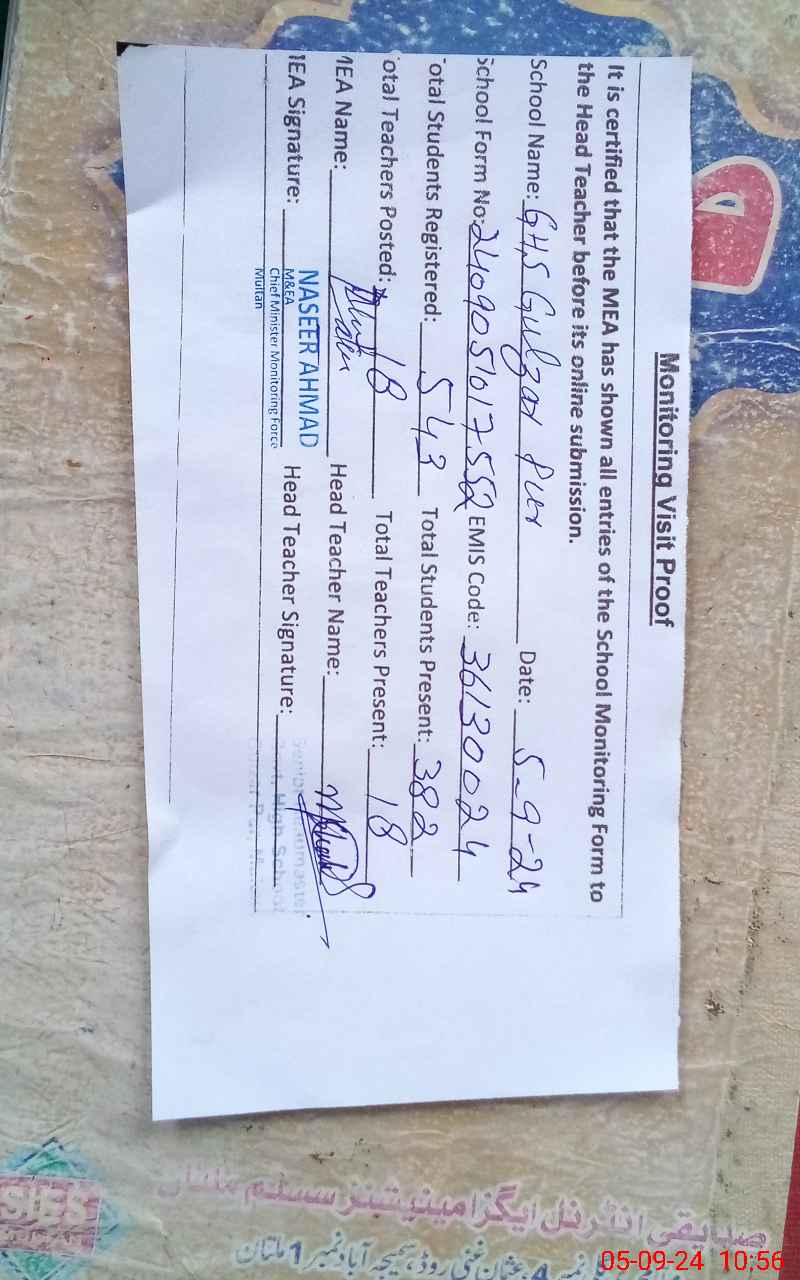 Monitoring Visit Proof
It is certified that the MEA has shown all entries of the School Monitoring Form to
the Head Teacher before its online submission.
School Name: GHS Gulzar Pur Date: 5-9-24
School Form No: 2409051017552 EMIS Code: 36130024
otal Students Registered: 543 Total Students Present: 382
otal Teachers Posted: 18 Total Teachers Present: 18
MEA Name: Head Teacher Name:
NASEER AHMAD
MEA Signature: Head Teacher Signature:
M&EA
Chief Minister Monitoring Force
Multan
Govt. High School
صادقی انٹرنل ایگزامینیشنز سسٹم ملتان
عثمان غنی روڈ، سمیجہ آباد نمبر 1 ملتان
SIES
05-09-24 10:56